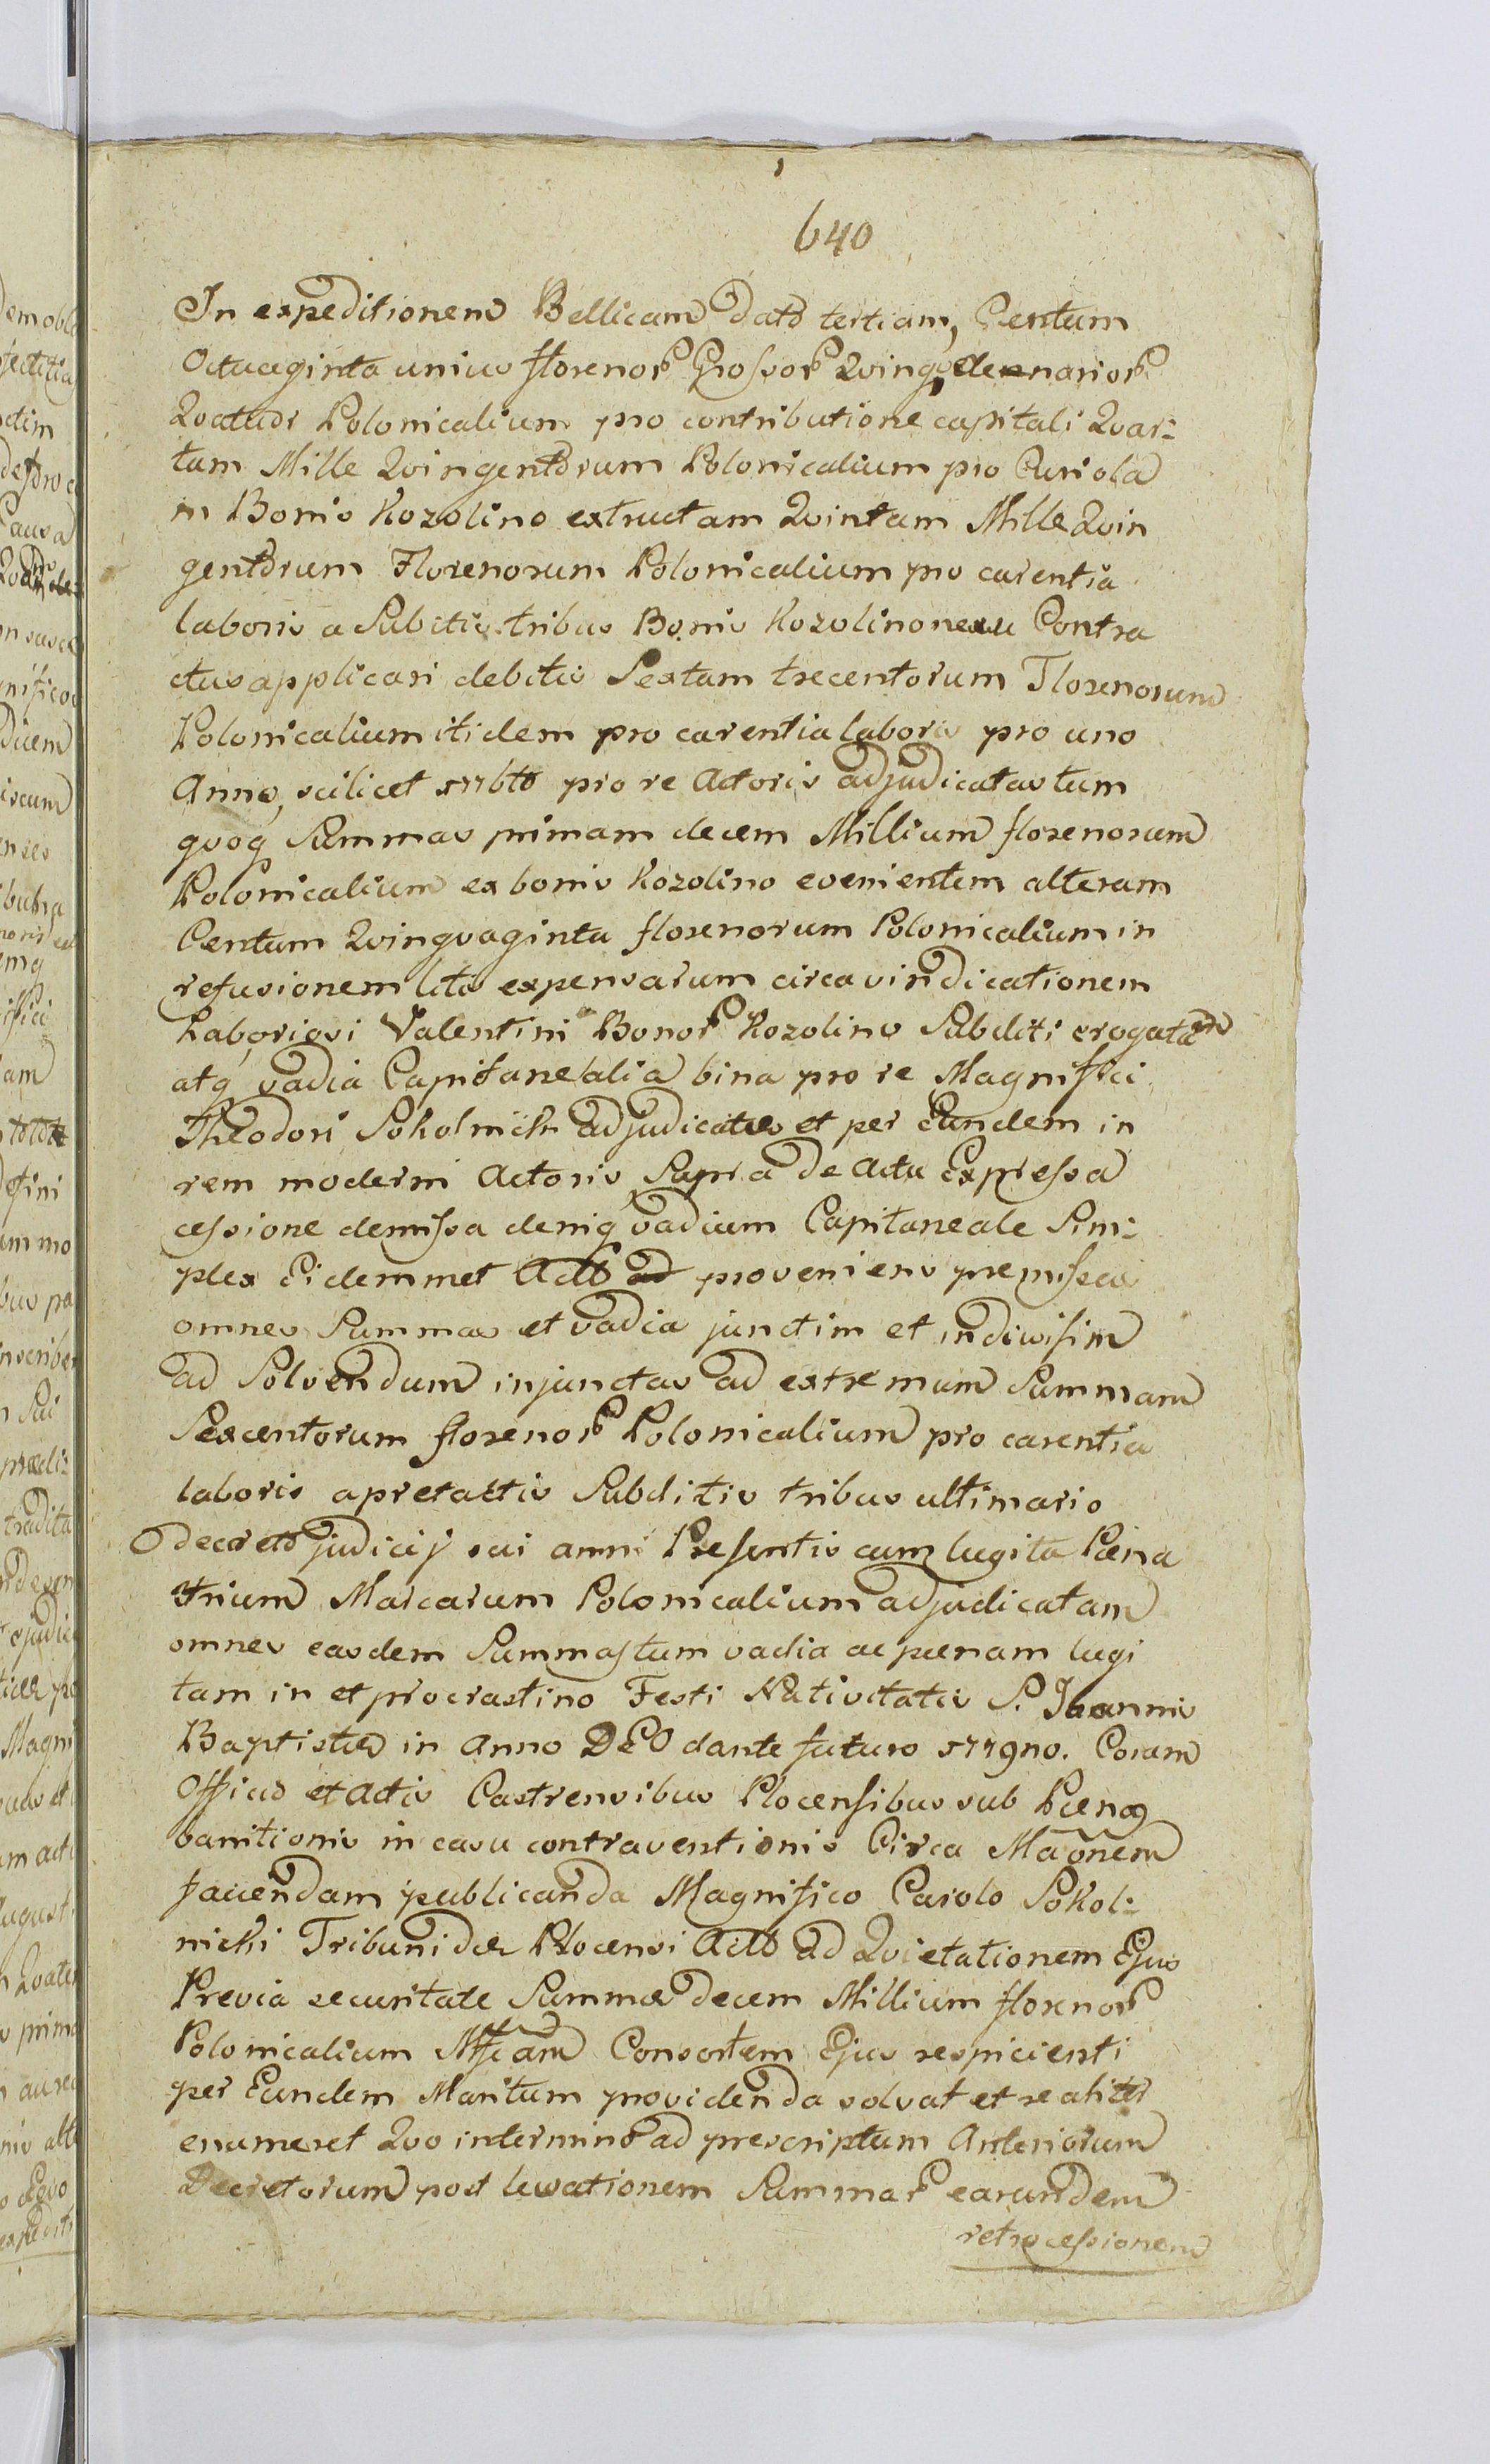 640
In expeditionem Bellicam dato tertiam, Centum
Octuaginta unius florenor Grossor Qvinq, denarior
Qvatuor Polonicalium pro contributione capitali Qvar:
tam Mille Qvingentorum Polonicalium pro Curiola
in Bonis Kozolino extructam Qvintam Mille Qvin
gentorum Florenorum Polonicalium pro carentia
laboris a Subitis tribus Bonis Kozolino nexu Contra
ctus applicari debitis Sextam trecentorum Florenorum
Polonicalium itidem pro carentia laboris pro uno
Anno, scilicet 1776to pro re Actoris adjudicatas tum
qvoq Summas primam decem Millium florenorum
Polonicalium ex bonis Kozolino evenientem alteram
Centum Qvinqvaginta florenorum Polonicalium in
refusionem litis expensarum circa vindicationem
Laboriosi Valentini Bonor Kozolino Subditi erogatarum
atq vadia Capitanealia bina pro re Magnifici
Theodori Sokolnicki adjudicatas et per Eundem in
rem moderni Actoris Supra de actu Expressa
cessione demissa deniq vadium Capitaneale Sim:
plex Eidemmet Acto proveniens premissas
omnes Summas et vadia junctim et indivisim
ad Solvendum injunctas ad extremum Summam
Sexcentorum florenor Polonicalium pro carentia
laboris a pretactis Subditis tribus ultimario
decreto judicij sui anni Presentis cum lugita Pæna
trium Marcarum Polonicalium adjudicatam
omnes easdem Summas tum vadia ac pænam lugi
tam in et procrastino Festi Nativitatis S. Joannis
Baptistæ in Anno DEO dante futuro 1779no. Coram
Officio et Actis Castrensibus Plocensibus sub Pæna
banitionis in casu contraventionis Circa Maõnem
faciendam publicanda Magnifico Carolo Sokol:
nicki Tribunidæ Plocensi Acto ad Qvietationem Ejus
Previa securitate Summæ decem Millium florenor
Polonicalium Mficam Consortem Ejus respicienti
per Eundem Maritum providenda solvat et realiter
enumeret Qvo in termino ad prescriptum Anteriorum
Decretorum post levationem Summar earundem
retrocessionem